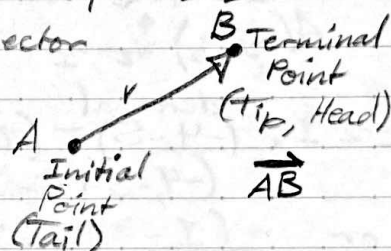 ector
B Terminal
Point
(Tip, Head)
r
A
Initial
Point
(Tail)
AB